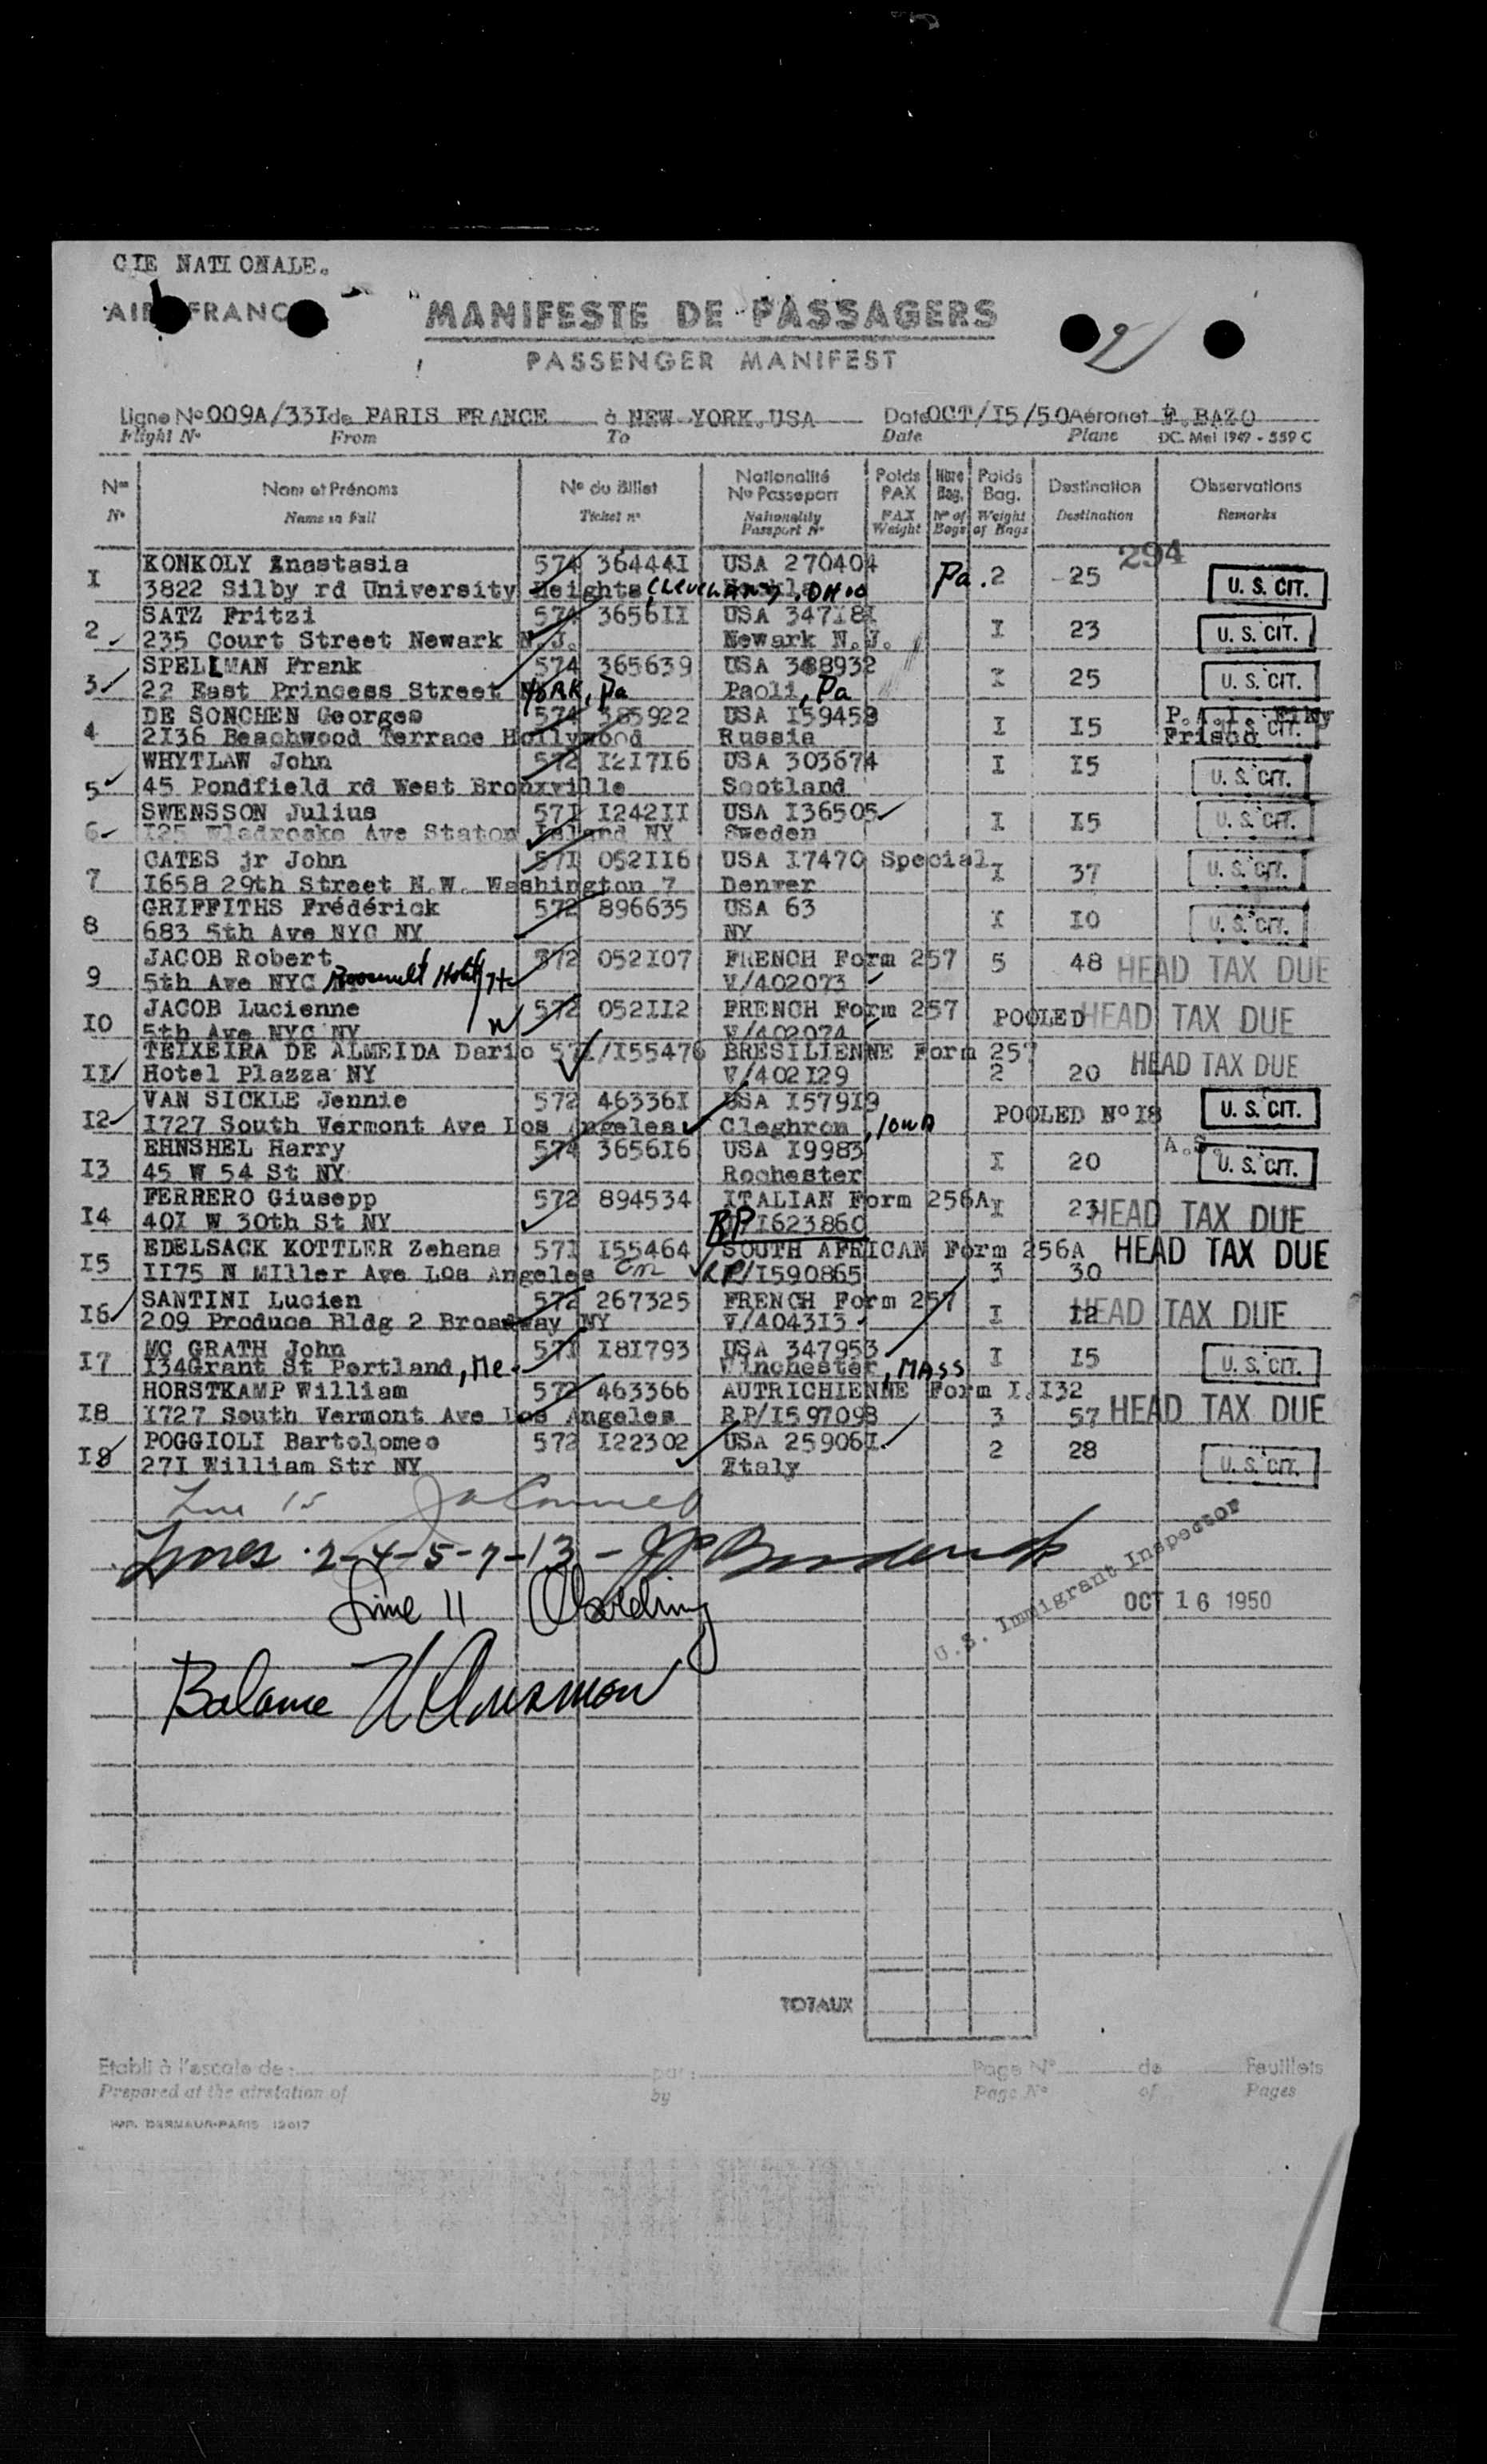 CIE NATIONALE.
AIR FRANC
MANIFESTE DE PASSAGERS
PASSENGER MANIFEST
2
Ligne No 009A/33I de PARIS FRANCE à NEW-YORK.USA Date OCT/I5/50 Aéronef F.BAZO
Flight No From To Date Plane DC. Mai 1949 - 559 C
Nos Nom et Prénoms No du Billet Nationalité No Passeport Poids PAX Nbre Bag. Poids Bag. Destination Observations
No Name in Full Ticket no Nationality Passport No PAX Weight No of Bags Weight of Bags Destination Remarks
294
I KONKOLY Anastasia 574 36444I USA 270404 Pa. 2 25 U. S. CIT.
3822 Silby rd University Heights CLEVELAND, OHIO
2 SATZ Fritzi 574 3656II USA 347I8I I 23 U. S. CIT.
235 Court Street Newark N.J. Newark N.J.
3 SPELLMAN Frank 574 365639 USA 388932 I 25 U. S. CIT.
22 East Princess Street YORK, Pa Paoli, Pa
4 DE SONCHEN Georges 574 385922 USA I59459 I I5 P.A.I. Frisco U. S. CIT.
2I36 Beachwood Terrace Hollywood Russia
5 WHYTLAW John 572 I2I7I6 USA 303674 I I5 U. S. CIT.
45 Pondfield rd West Bronxville Scotland
6 SWENSSON Julius 57I I242II USA I36505 I I5 U. S. CIT.
I25 Wladroske Ave Staton Island NY Sweden
7 CATES jr John 57I 052II6 USA I7470 Special I 37 U. S. CIT.
I658 29th Street N.W. Washington 7 Denver
8 GRIFFITHS Frédérick 572 896635 USA 63 I I0 U. S. CIT.
683 5th Ave NYC NY NY
9 JACOB Robert 572 052I07 FRENCH Form 257 5 48 HEAD TAX DUE
5th Ave NYC Roosevelt Hotel V/402073
I0 JACOB Lucienne 572 052II2 FRENCH Form 257 POOLED HEAD TAX DUE
5th Ave NYC NY V/402074
II TEIXEIRA DE ALMEIDA Dario 57I/I55476 BRESILIENNE Form 257 2 20 HEAD TAX DUE
Hotel Plazza NY V/402I29
I2 VAN SICKLE Jennie 572 46336I USA I579I9 POOLED No I8 U. S. CIT.
I727 South Vermont Ave Los Angeles Cleghron, IowA
I3 EHNSHEL Harry 574 3656I6 USA I9983 I 20 A.S. U. S. CIT.
45 W 54 St NY Rochester
I4 FERRERO Giusepp 572 894534 ITALIAN Form 256A I 23 HEAD TAX DUE
40I W 30th St NY RP I623860
I5 EDELSACK KOTTLER Zehana 57I I55464 SOUTH AFRICAN Form 256A 3 30 HEAD TAX DUE
II75 N MIller Ave Los Angeles RP/I590865
I6 SANTINI Lucien 572 267325 FRENCH Form 257 I I2 HEAD TAX DUE
209 Produce Bldg 2 Broadway NY V/4043I3
I7 MC GRATH John 57I I8I793 USA 347953 I I5 U. S. CIT.
I34Grant St Portland, Me. Winchester, MASS
I8 HORSTKAMP William 572 463366 AUTRICHIENNE Form I.I32 3 57 HEAD TAX DUE
I727 South Vermont Ave Los Angeles R.P/I597098
I9 POGGIOLI Bartolomeo 572 I22302 USA 25906I 2 28 U. S. CIT.
27I William Str NY Italy
Line 15
Lines 2-4-5-7-13 -
Line 11
U.S. Immigrant Inspector
OCT 16 1950
Balance
TOTAUX
Etabli à l'escale de: par: Page No de Feuillets
Prepared at the airstation of by Page No of Pages
IMP. DERMAUR-PARIS 12017